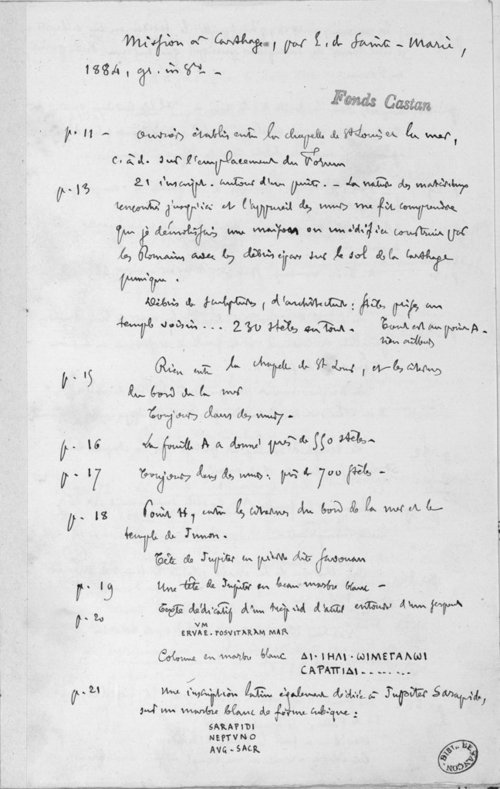 Mission à Carthage, par E. de Sainte-Marie,
1884, gr. in 8° -
Fonds Castan
p. 11 - ouvriers établis entre la chapelle de St Louis et la mer,
c. à d. sur l'emplacement du Forum
p. 13 21 inscript. autour d'un puits. - La nature des matériaux
rencontrés jusqu'ici et l'appareil des murs me fit comprendre
que je démolissais une maison ou un édifice construit par
les Romains avec les débris épars sur le sol de la Carthage
punique.
Débris de sculptures, d'architecture: stèles
temple voisin... 230 stèles en tout. Tout est au point A -
rien ailleurs
p. 15 Rien entre la chapelle de St Louis, et les citernes
du bord de la mer
Toujours dans des murs -
p. 16 La fouille A a donné près de 550 stèles -
p. 17 Toujours dans des murs: près de 700 stèles -
p. 18 Point H, entre les citernes du bord de la mer et le
temple de Junon.
Tête de Jupiter en pierre dite
p. 19 Une tête de Jupiter en beau marbre blanc -
p. 20 Texte dédicatif d'un d'autel entouré d'un serpent
VM
ERVAE. POSVITARAM MAR
Colonne en marbre blanc ΔΙ·ΙΗΛΙ·ѠΙΜΕΓΑΛѠΙ
CΑΡΑΠΙΔΙ........
p. 21 Une inscription latine également dédiée à Jupiter Sarapide,
sur un marbre blanc de forme cubique:
SARAPIDI
NEPTVNO
AVG - SACR
BIBL. BESANÇON